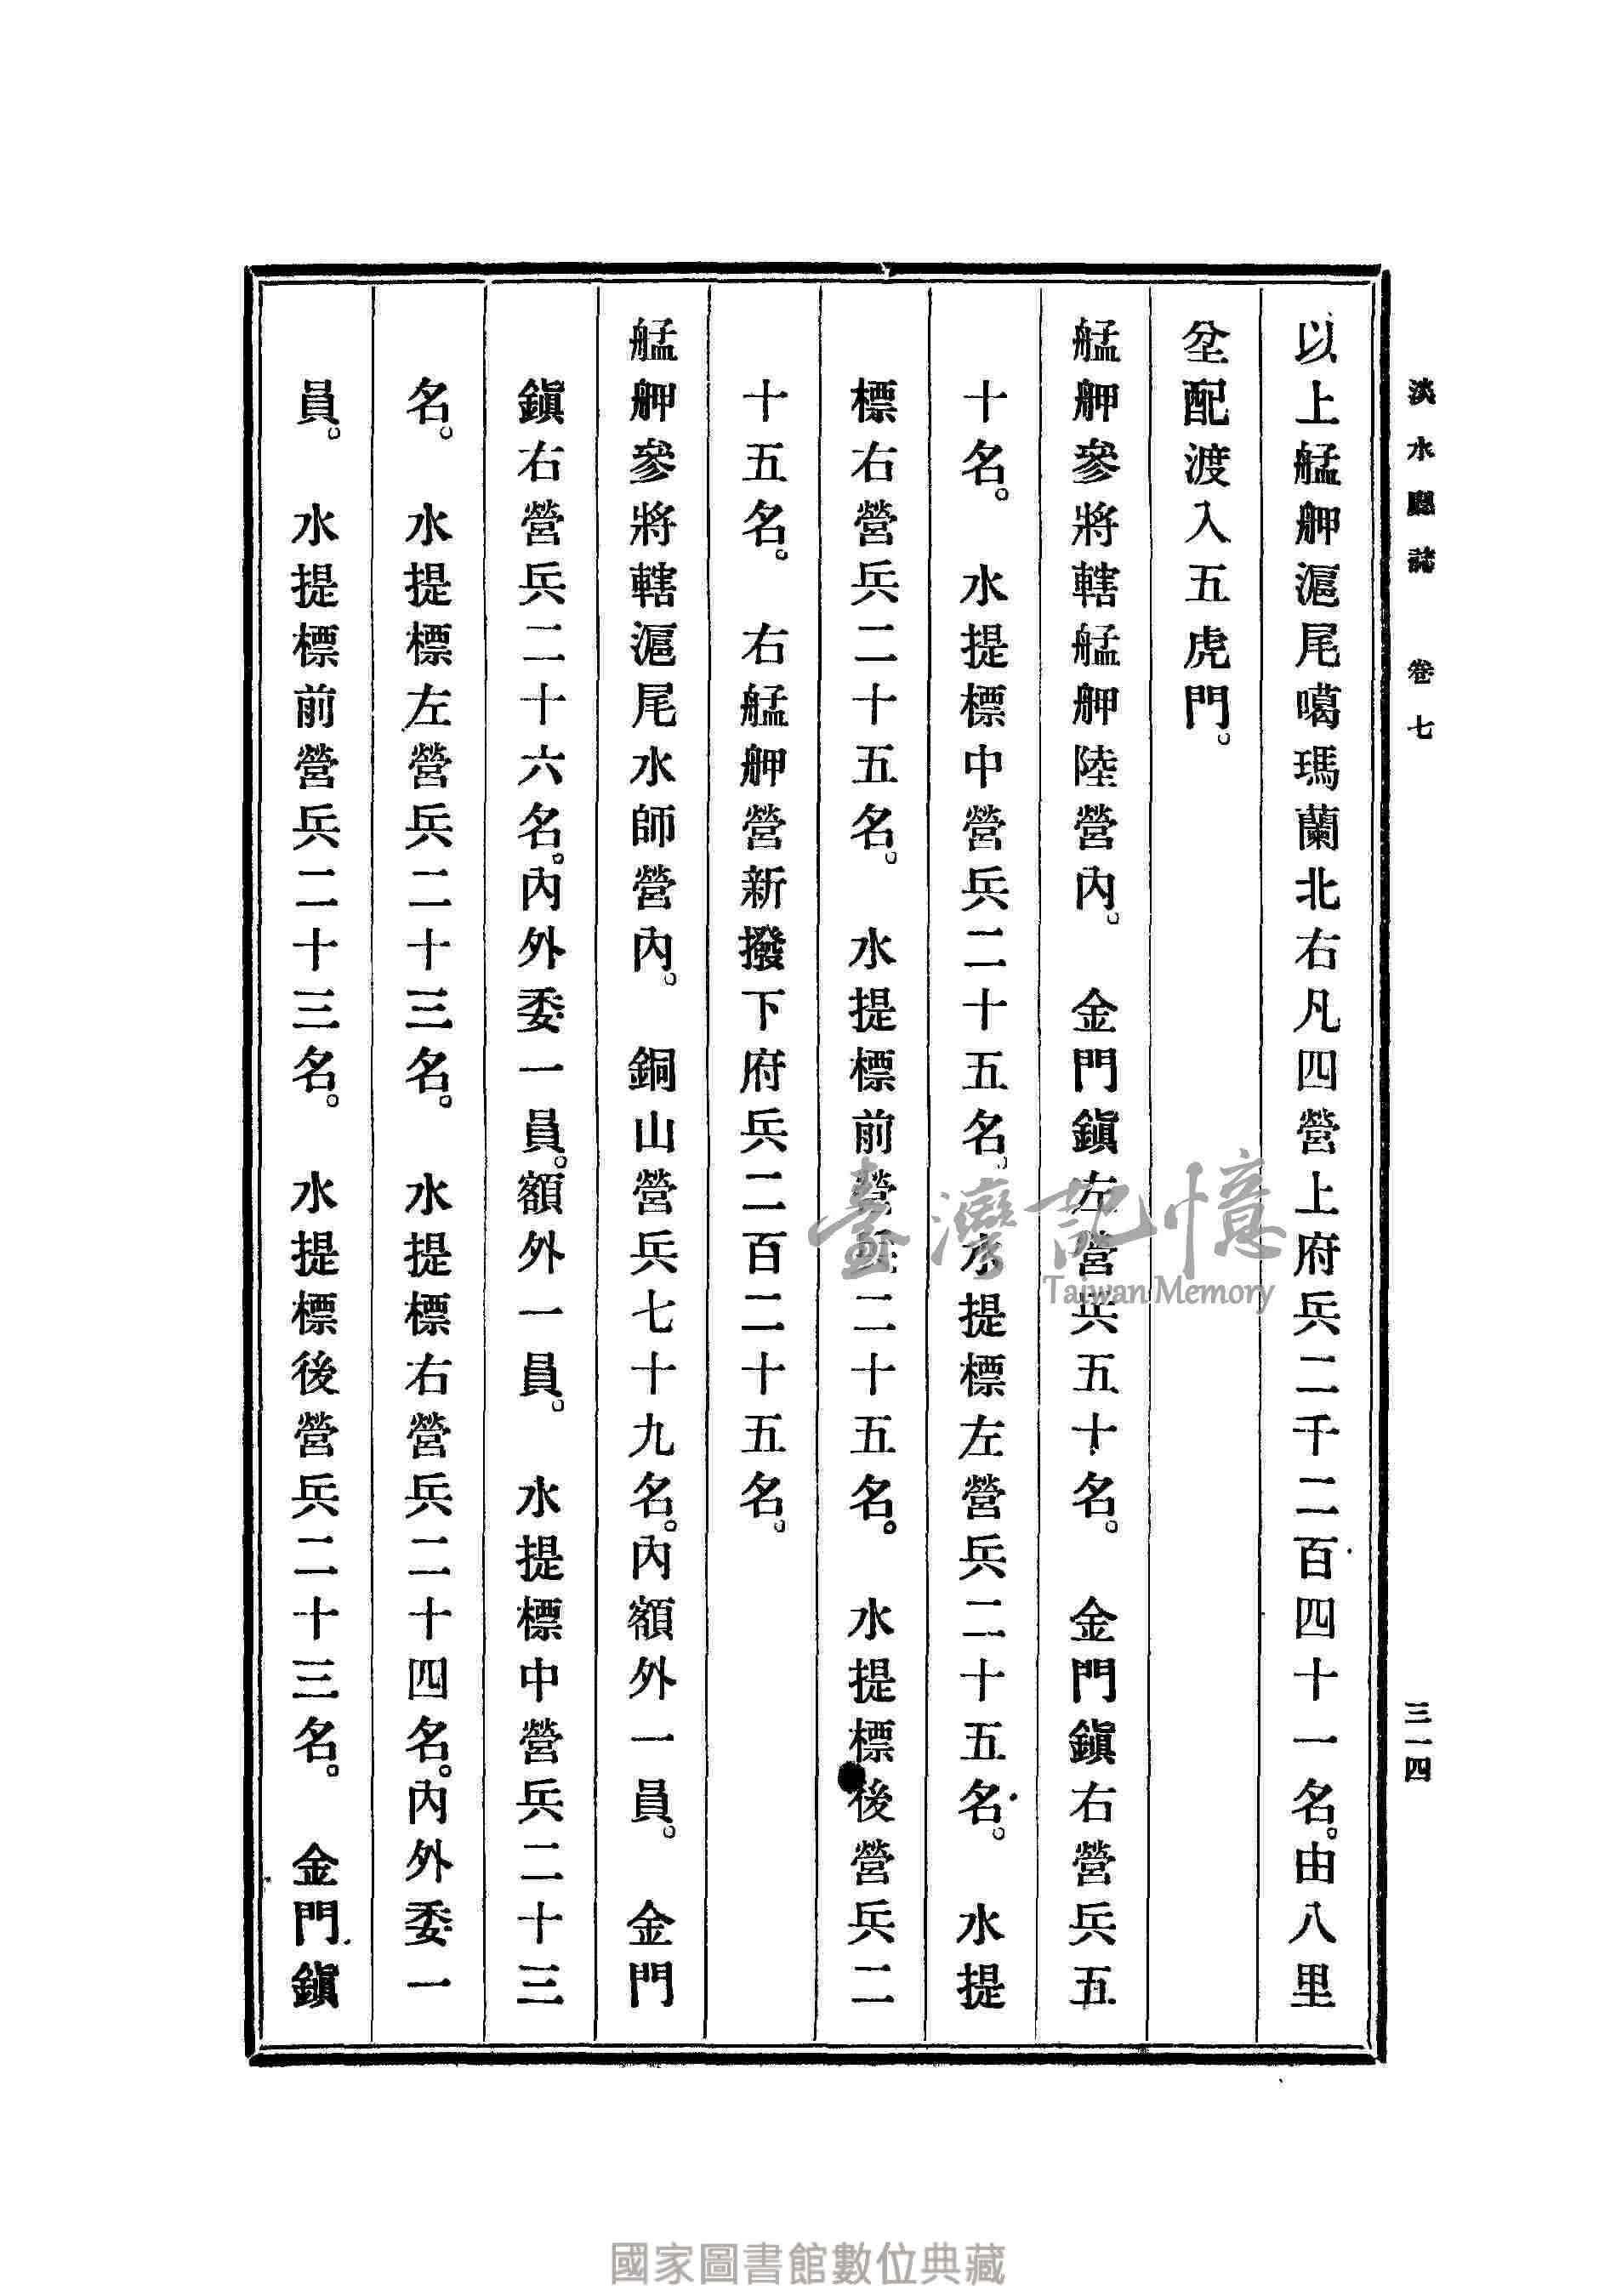 淡水廳誌　卷七　三一四
以上艋舺滬尾噶瑪蘭北右凡四營上府兵二千二百四十一名。由八里
坌配渡入五虎門。
艋舺參將轄艋舺陸營內。　金門鎭左營兵五十名。　金門鎭右營兵五
十名。　水提標中營兵二十五名。　水提標左營兵二十五名。　水提
標右營兵二十五名。　水提標前營兵二十五名。　水提標後營兵二
十五名。　右艋舺營新撥下府兵二百二十五名。
艋舺參將轄滬尾水師營內。　銅山營兵七十九名。內額外一員。　金門
鎭右營兵二十六名。內外委一員。額外一員。　水提標中營兵二十三
名。　水提標左營兵二十三名。　水提標右營兵二十四名。內外委一
員。　水提標前營兵二十三名。　水提標後營兵二十三名。　金門鎭
臺灣記憶
Taiwan Memory
國家圖書館數位典藏